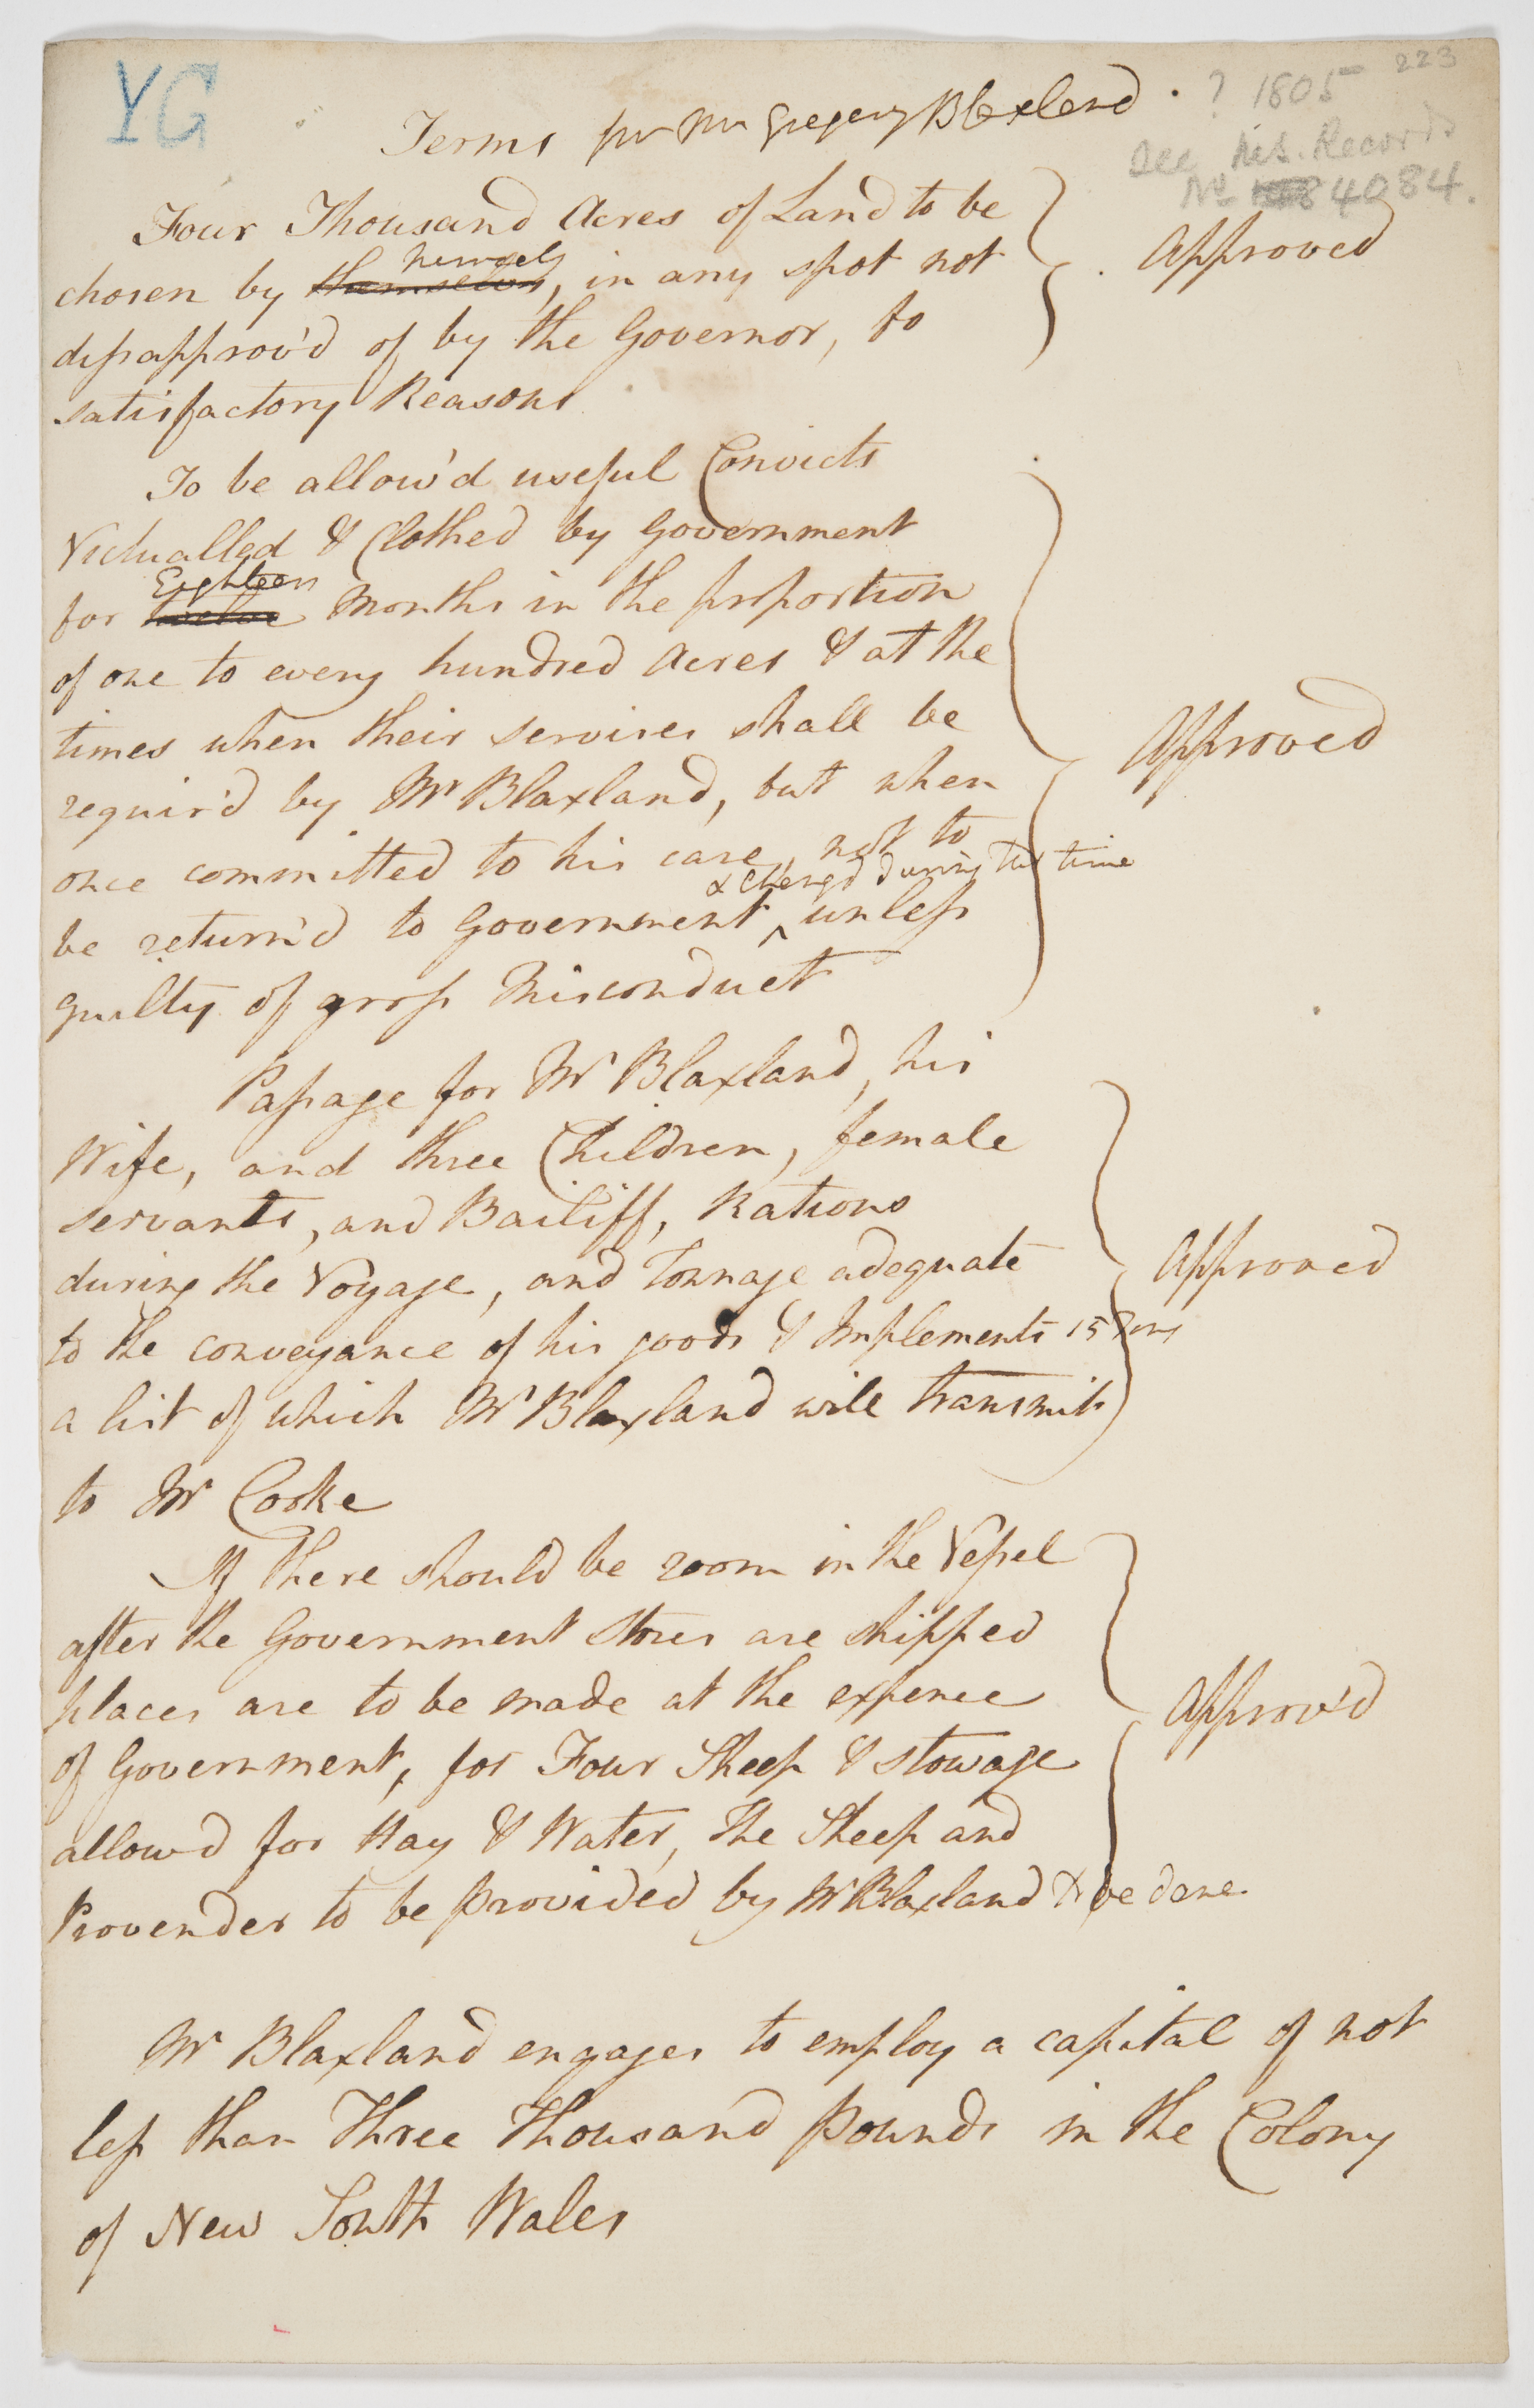 YG
223
? 1805
See His. Records
No 84084.
Terms for Mr Gregory Blaxland.
Four Thousand Acres of Land to be
himself
chosen by themselves, in any spot not
Approved
disapprov'd of by the Governor, to
satisfactory Reasons
To be allow'd useful Convicts
Victualled & Clothed by Government
Eighteen
for twelve Months in the proportion
of one to every hundred Acres & at the
times when their services shall be
Approved
requir'd by Mr Blaxland, but when
once committed to his care, not to
& cheng'd during that time
be return'd to Government ^ unless
guilty of gross Misconduct
Passage for Mr Blaxland, his
Wife, and three Children, female
servants, and Bailiff, Rations
during the Voyage, and Tonnage adequate
Approved
to the conveyance of his goods & Implements 15 Tons
a list of which Mr Blaxland will transmit
to Mr Cooke
If there should be room in the Vessel
after the Government Stores are shipped
places are to be made at the expence
Approv'd
of Government, for Four Sheep & stowage
allow'd for Hay & Water, the Sheep and
Provender to be provided by Mr Blaxland to be done.
Mr Blaxland engages to employ a capital of not
less than Three Thousand Pounds in the Colony
of New South Wales